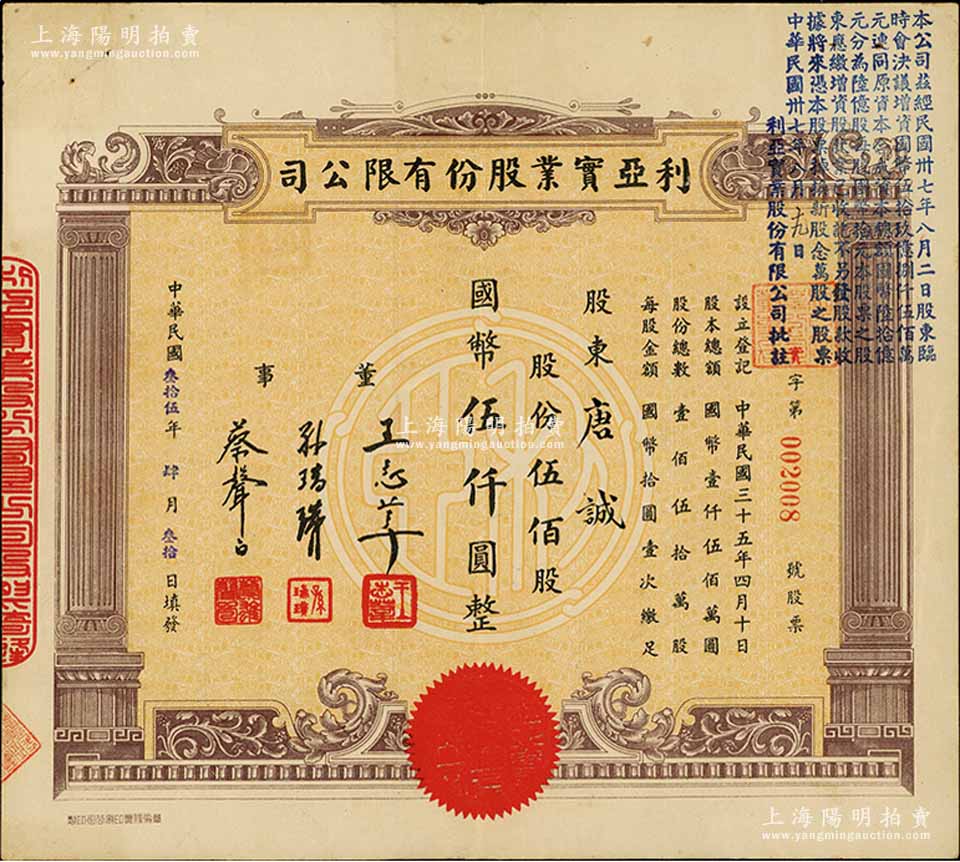 上海陽明拍賣
www.yangmingauction.com
本公司茲經民國卅七年八月二日股東臨
時會決議增資國幣伍拾玖億捌仟伍佰萬
元連同原資本合成資本總額國幣陸拾億
元分為陸億股每股國幣拾元本股票之股
東應繳增資股款業已收訖不另發股款收
據將來憑本股票換換新股念萬股之股票
中華民國卅七年八月十九日
利亞實業股份有限公司批註
利亞實業股份有限公司
字第 002008 號股票
設立登記 中華民國三十五年四月十日
股本總額 國幣壹仟伍佰萬圓
股份總數 壹佰伍拾萬股
每股金額 國幣拾圓壹次繳足
股東 唐誠
股份伍佰股
國幣伍仟圓整
董事
王志莘
孫瑞璜
蔡聲白
中華民國叁拾伍年肆月叁拾日填發
上海陽明拍賣
www.yangmingauction.com
上海陽明拍賣
www.yangmingauction.com